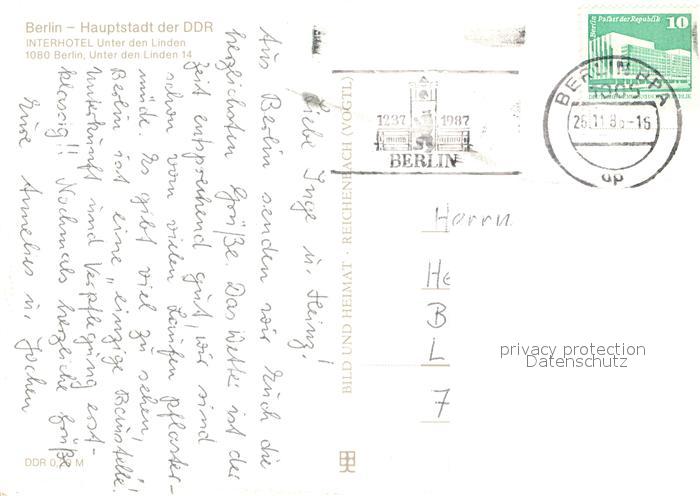 Berlin – Hauptstadt der DDR
INTERHOTEL Unter den Linden
1080 Berlin, Unter den Linden 14
Liebe Inge u. Heinz!
Aus Berlin senden wir Euch die
herzlichsten Grüße. Das Wetter ist der
Zeit entsprechend gut, wir sind
schon vom vielen Laufen pflaster-
müde. Es gibt viel zu sehen,
Berlin ist eine "einzige Baustelle!
Unterkunft und Verpflegung erst-
klassig!! Nochmals herzliche Grüße
Eure Annelies u. Jochen
DDR 0, M
BILD UND HEIMAT · REICHENBACH (VOGTL)
1237 1987
BERLIN
Berlin Palast der Republik
10
BERLIN BPA
1085
25.11.8 -16
ap
Herrn
He
B
L
7
privacy protection
Datenschutz